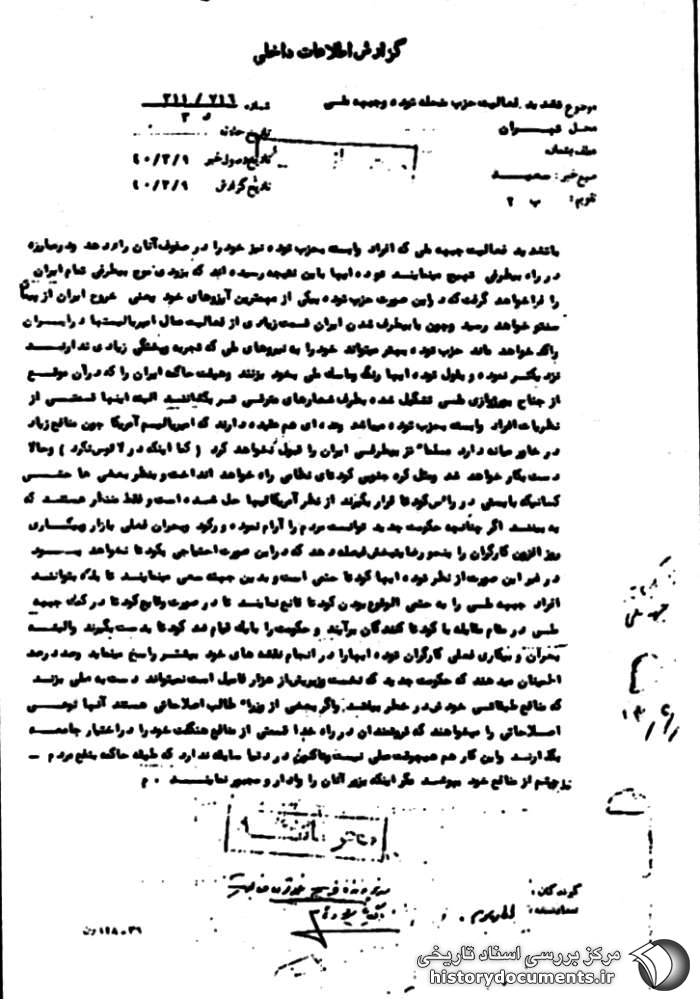 گزارش اطلاعات داخلی
موضوع تشدید فعالیت حزب منحله توده و جبهه ملی
شماره ۳۱۱/۷۱۶
محل تهران
تاریخ حادثه
تاریخ وصول خبر ۴۰/۳/۹
منبع خبر: سعید
تاریخ گزارش ۴۰/۳/۹
تقویم: ب ۲
با تشدید فعالیت جبهه ملی که افراد وابسته بحزب توده نیز خود را در صفوف آنان راه دهد و در مبارزه
در راه بیطرفی تهییج مینمایند توده ایها باین نتیجه رسیده اند که بزودی موج بیطرفی تمام ایران
را فرا خواهد گرفت که در این صورت حزب توده بیکی از مهمترین آرزوهای خود یعنی خروج ایران از پیمان
سنتو خواهد رسید و چون با بیطرف شدن ایران قسمت زیادی از فعالیت عمال امپریالیستها در ایران
راکد خواهد ماند حزب توده بهتر میتواند خود را به نیروهای ملی که تجربه و پختگی زیادی ندارند
نزدیکتر نموده و بقول توده ایها رنگ و ماسک ملی بخود بزنند و هیئت حاکمه ایران را که در آن موقع
از جناح بورژوازی ملی تشکیل شده بطرف شعارهای مترقی تر بکشانند البته اینها قسمتی از
نظریات افراد وابسته بحزب توده میباشد وعده ای هم عقیده دارند که امپریالیسم آمریکا چون منافع زیاد
در خاورمیانه دارد مسلما نیز بیطرفی ایران را قبول نخواهد کرد (کما اینکه در لائوس نکرد) و حالا
دست بکار خواهد شد و مثل کره جنوبی کودتای نظامی راه خواهد انداخت و بنظر بعضی ها حتی
کسانیکه بایستی در راس کودتا قرار بگیرند از نظر آمریکائیها حل شده است و فقط منتظر هستند که
به بینند اگر چنانچه حکومت جدید توانست مردم را آرام نموده و رکود و بحران فعلی بازار و بیکاری
روز افزون کارگران را بنحو رضایتبخش فیصله دهد که در این صورت احتیاجی بکودتا نخواهد بود
در غیر این صورت از نظر توده ایها کودتا حتمی است و بدین جهت سعی مینمایند تا بلکه بتوانند
افراد جبهه ملی را به حتمی الوقوع بودن کودتا قانع نمایند تا در صورت وقایع کودتا در کمک جبهه
ملی در مقام مقابله با کودتا کنندگان برآیند و حکومت را با یک قیام ضد کودتا بدست بگیرند والبته
بحران و بیکاری فعلی کارگران توده ایها را در انجام نقشه های خود بیشتر راسخ مینماید و صد درصد
اطمینان میدهند که حکومت جدید که نخست وزیرش از هزار فامیل است نمیتواند دست به عملی بزند
که منافع طبقاتی خودش در خطر بیافتد و اگر بعضی از وزراء طالب اصلاحاتی هستند آنها نوعی
اصلاحاتی را میخواهند که ثروتمندان در راه خدا قسمتی از منافع هنگفت خود را در اختیار جامعه
بگذارند و این کار هم هیچوقت عملی نیست و تاکنون در دنیا سابقه ندارد که طبقه حاکمه بنفع مردم -
از منافع خود مگر اینکه بزور آنان را وادار و مجبور نمایند . م
جبهه ملی
گیرندگان:
مرکز بررسی اسناد تاریخی
historydocuments.ir